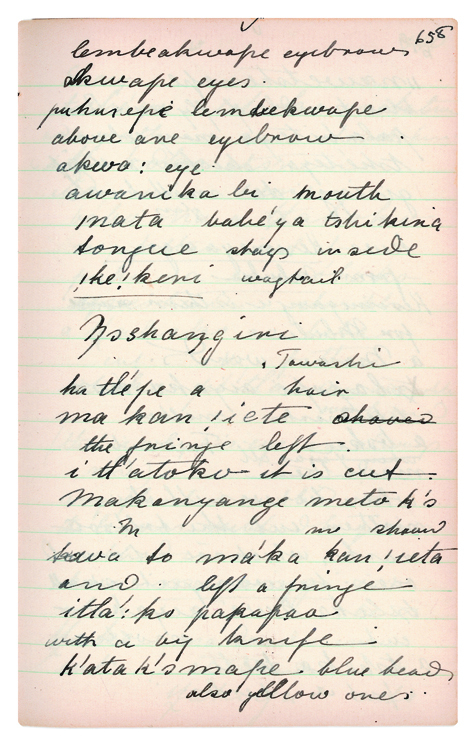 658
lembeakwape eyebrows
akwape eyes.
puhurepe lembekwape
above are eyebrow
akwa: eye.
awanika bi mouth
mata babéya tshikina
tongue stays inside
ike!keni wagtail.
Tawashi
hatlépe a hair
ma kan!iete shaved
the fringe left.
itl'atoko it is cut.
Makanyange metok's
M me shave
tava to máka kan!ieta
and left a fringe
itla!:ko papapaa
with a big knife
k'atak'smape blue beads
also yellow ones.